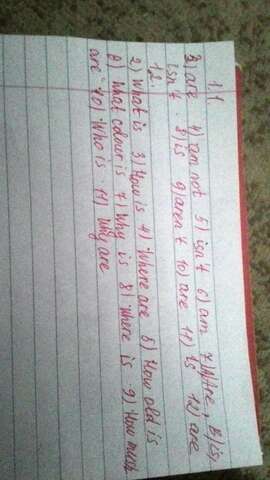 1.1
3) are 4) am not 5) isn't 6) am 7) Are,
isn't. 8) is 9) aren't 10) are 11) is 12) are
1.2.
2) What is 3) How is 4) Where are 5) How old is
6) What colour is 7) Why is 8) Where is 9) How much
are 10) Who is 11) Why are